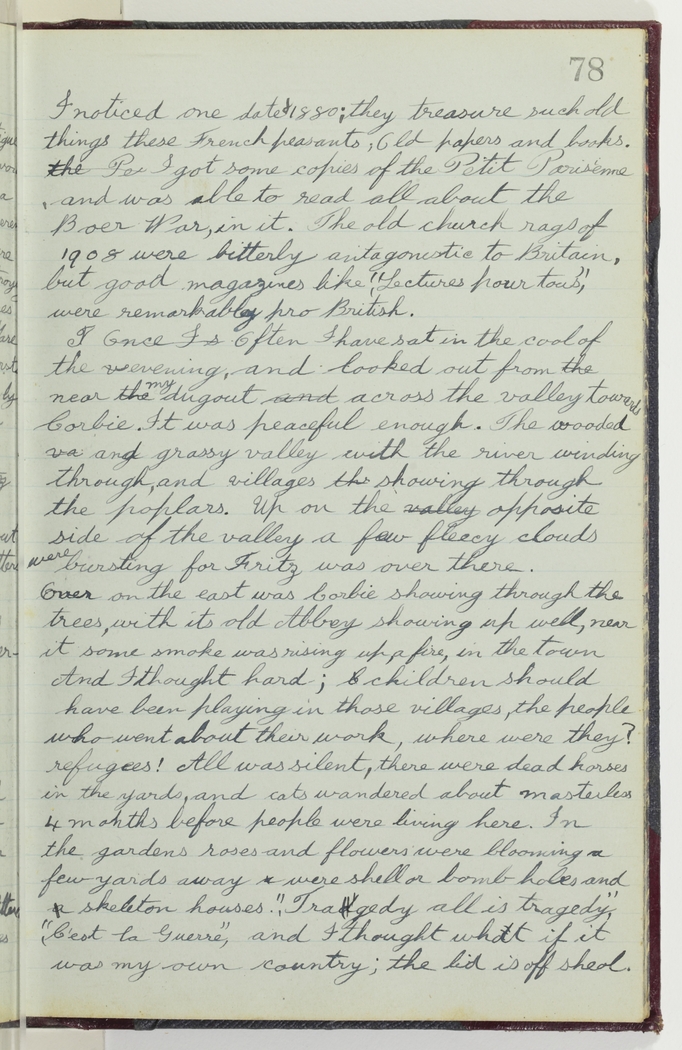 78
I noticed one date 1880; they treasure such old
things these French peasants; Old papers and books.
the Pe I got some copies of the Petit Parisienne
, and was able to read all about the
Boer War, in it. The old church rags of
1908 were bitterly antagonistic to Britain,
but good magazines like "Lectures pour tous",
were remarkably pro British.
I Once I s Often I have sat in the cool of
the evening, and looked out from the
near the my dugout and across the valley towards
Corbie. It was peaceful enough. The wooded
va and grassy valley with the river winding
through, and villages th showing through
the poplars. Up on the valley opposite
side of the valley a few fleecy clouds
were bursting for Fritz was over there.
Over on the east was Corbie showing through the
trees, with its old Abbey showing up well, near
it some smoke was rising up, a fire, in the town
And I thought hard; children should
have been playing in those villages, the people
who went about their work, where were they?
refugees! All was silent, there were dead horses
in the yards, and cats wandered about masterless
4 months before people were living here. In
the gardens roses and flowers were blooming a
few yards away were shell or bomb holes and
skeleton houses. "Tragedy all is tragedy",
"C'est la Guerre", and I thought what if it
was my own country; the lid is off sheol.